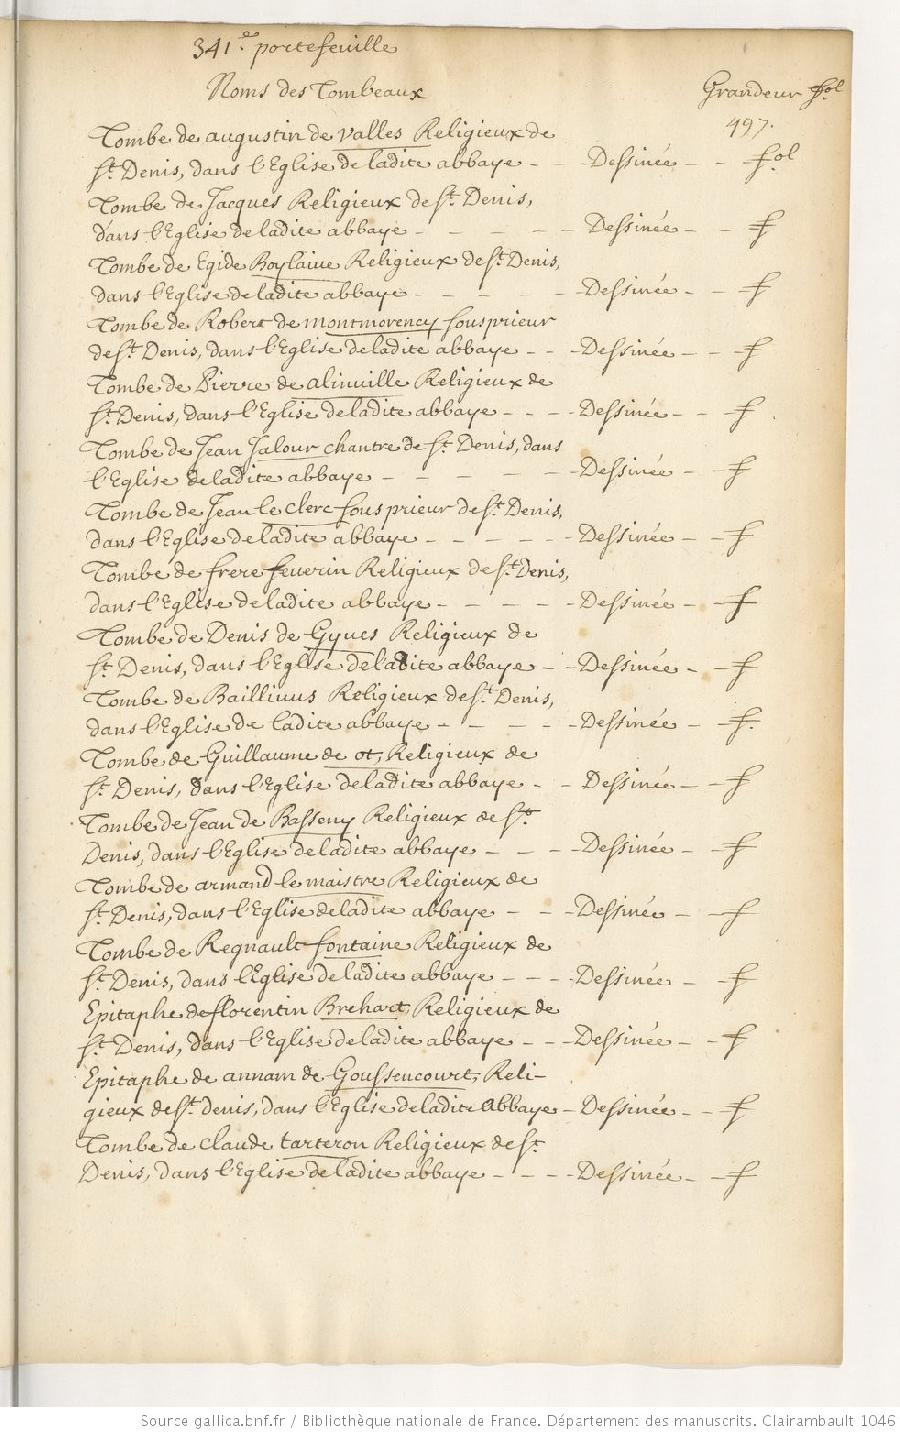 341.e portefeuille
Noms des Tombeaux Grandeur fol.
497.
Tombe de augustin de Valles Religieux de
St. Denis, dans l'Eglise de ladite abbaye - - Dessinée - - fol
Tombe de Jacques Religieux de St. Denis,
dans l'Eglise de ladite abbaye - - - - - Dessinée - - f
Tombe de Egide Roylaine Religieux de St. Denis,
dans l'Eglise de ladite abbaye - - - - - Dessinée - - f
Tombe de Robert de Montmorency sousprieur
de St. Denis, dans l'Eglise de ladite abbaye - - - Dessinée - - f
Tombe de Pierre de alinville Religieux de
St. Denis, dans l'Eglise de ladite abbaye - - - - Dessinée - - f
Tombe de Jean Jalour chantre de St. Denis, dans
l'Eglise de ladite abbaye - - - - - Dessinée - - f
Tombe de Jean le clerc sousprieur de St. Denis,
dans l'Eglise de ladite abbaye - - - - - Dessinée - - f
Tombe de frere severin Religieux de St. Denis,
dans l'Eglise de ladite abbaye - - - - - Dessinée - - f
Tombe de Denis de Gyues Religieux de
St. Denis, dans l'Eglise de ladite abbaye - - Dessinée - - f
Tombe de Baillivus Religieux de St. Denis,
dans l'Eglise de ladite abbaye - - - - - Dessinée - - f.
Tombe de Guillaume de ot, Religieux de
St. Denis, dans l'Eglise de ladite abbaye - - Dessinée - - f
Tombe de Jean de Basseny Religieux de St.
Denis, dans l'Eglise de ladite abbaye - - - - Dessinée - - f
Tombe de armand le maistre Religieux de
St. Denis, dans l'Eglise de ladite abbaye - - - Dessinée - - f
Tombe de Regnault fontaine Religieux de
St. Denis, dans l'Eglise de ladite abbaye - - - - Dessinée - - f
Epitaphe de florentin Brehart, Religieux de
St. Denis, dans l'Eglise de ladite abbaye - - - Dessinée - - f
Epitaphe de annam de Goussencourt, Reli-
gieux de St. denis, dans l'Eglise de ladite Abbaye - Dessinée - - f
Tombe de claude tarteron Religieux de St.
Denis, dans l'Eglise de ladite abbaye - - - - Dessinée - - f
Source gallica.bnf.fr / Bibliothèque nationale de France. Département des manuscrits. Clairambault 1046